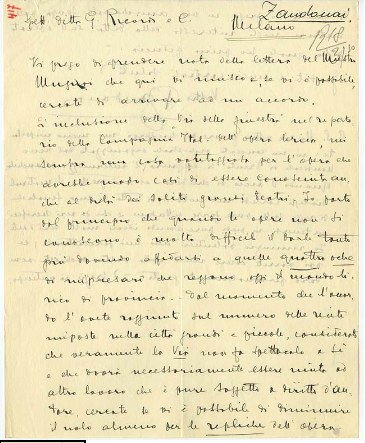 Zandonai
Spett. ditta G. Ricordi e C.
Milano
Vi prego di prendere nota della lettera del Maestro
che qui vi unisco e, se vi è possibile,
cercate di arrivare ad un accordo.
L'inclusione della Via della finestra nel reperto-
rio della Compagnia Ital. dell'opera lirica, mi
sembra una cosa vantaggiosa per l'opera che
avrebbe modo così di essere conosciuta an-
che al di là dei soliti grandi teatri. Io parto
dal principio che quando le opere non si
conoscono, è molto difficile il darle tanto
più dovendo affidarsi a quelle quattro oche
di impresari che reggono oggi il mondo li-
rico di provincia. Dal momento che l'accor-
do l'avete raggiunto sul numero delle recite
imposte nelle città grandi e piccole, considerato
che veramente la Via non fa spettacolo a sè
e che dovrà necessariamente essere unita ad
altro lavoro che è pure soggetto a diritti d'au-
tore, cercate se vi è possibile di diminuire
il nolo almeno per le repliche dell'opera